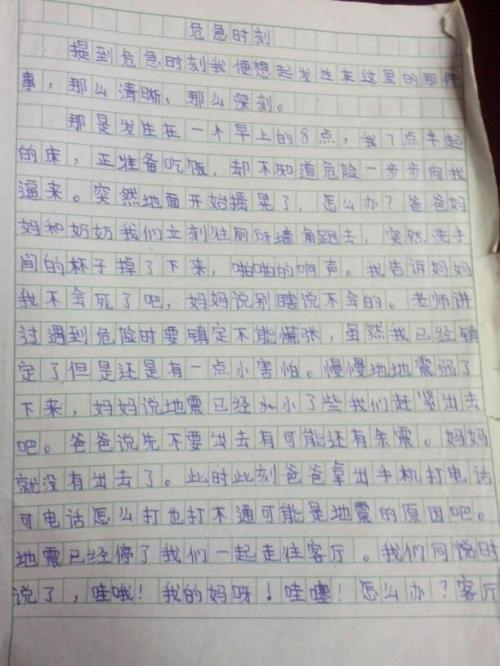 危急时刻
提到危急时刻我便想起发生在这里的那件
事，那么清晰、那么深刻。
那是发生在一个早上的8点，我7点半起
的床，正准备吃饭，却不知道危险一步步向我
逼来。突然地面开始摇晃了，怎么办？爸爸妈
妈和奶奶我们立刻往厕所墙角跑去，突然洗手
间的杯子掉了下来，啪啪的响声。我告诉妈妈
我不会死了吧，妈妈说别瞎说不会的。老师讲
过遇到危险时要镇定不能慌张，虽然我已经镇
定了但是还是有一点小害怕。慢慢地地震弱了
下来，妈妈说地震已经小了些我们赶紧出去
吧。爸爸说先不要出去有可能还有余震。妈妈
就没有出去了。此时此刻爸爸拿出手机打电话
可电话怎么打也打不通可能是地震的原因吧。
地震已经停了我们一起走住客厅。我们同时
说了，哇哦！我的妈呀！哇噻！怎么办？客厅